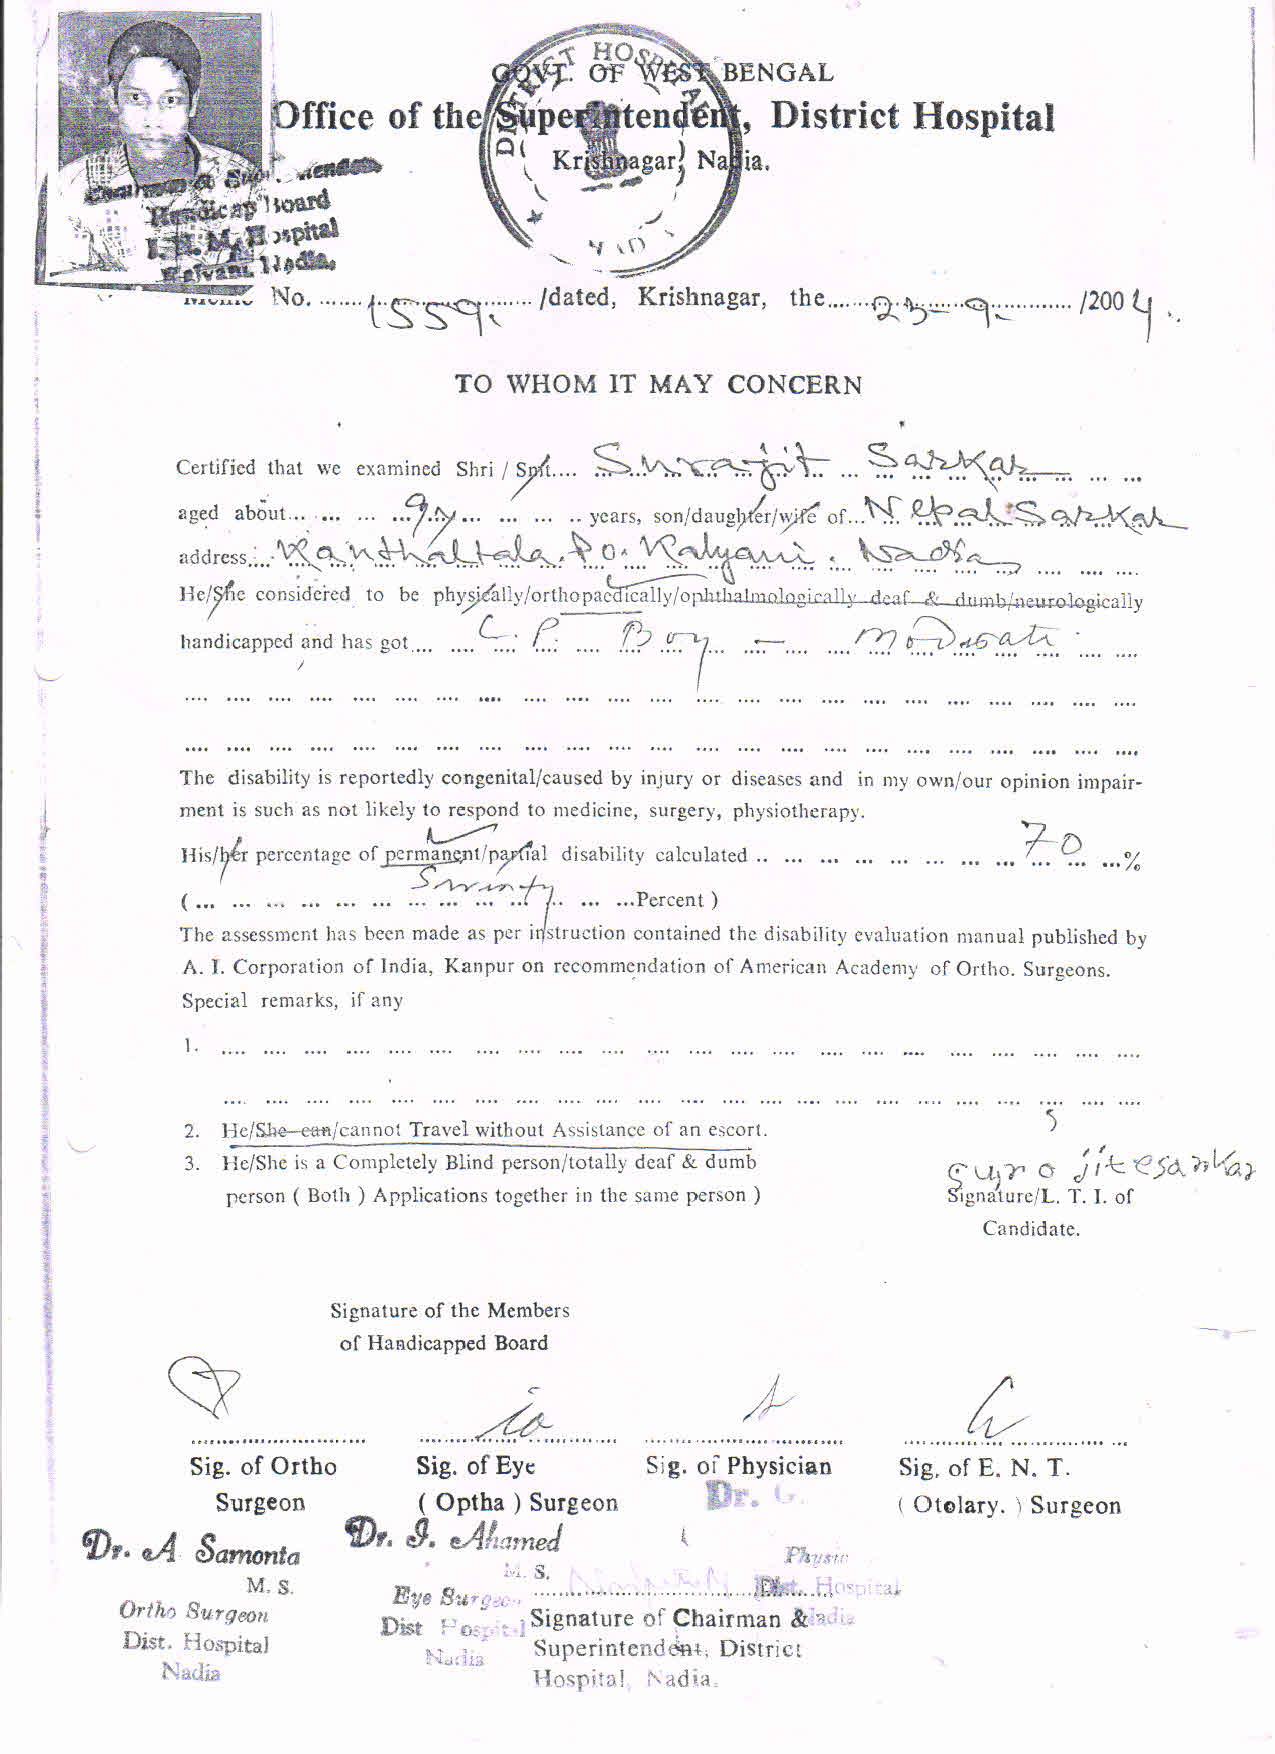 GOVT. OF WEST BENGAL
Office of the Superintendent, District Hospital
Krishnagar, Nadia.
DISTRICT HOSPITAL
Chairman & Superintendent
Handicap Board
J. N. M. Hospital
Kalyani, Nadia.
Memo No. 1559. /dated, Krishnagar, the 23-9- /2004.
TO WHOM IT MAY CONCERN
Certified that we examined Shri / Smt. Surajit Sarkar
aged about 9y years, son/daughter/wife of Nepal Sarkar
address Kanthaltala. Po. Kalyani. Nadia
He/She considered to be physically/orthopaedically/ophthalmologically deaf & dumb/neurologically
handicapped and has got C. P. Boy - moderate
The disability is reportedly congenital/caused by injury or diseases and in my own/our opinion impair-
ment is such as not likely to respond to medicine, surgery, physiotherapy.
His/her percentage of permanent/partial disability calculated 70 %
( Seventy Percent )
The assessment has been made as per instruction contained the disability evaluation manual published by
A. I. Corporation of India, Kanpur on recommendation of American Academy of Ortho. Surgeons.
Special remarks, if any
1.
2. He/She can/cannot Travel without Assistance of an escort.
3. He/She is a Completely Blind person/totally deaf & dumb
person ( Both ) Applications together in the same person )
Signature/L. T. I. of
Candidate.
Signature of the Members
of Handicapped Board
Sig. of Ortho Sig. of Eye Sig. of Physician Sig. of E. N. T.
Surgeon ( Optha ) Surgeon Dr. G. ( Otolary. ) Surgeon
Dr. A Samonta Dr. J. Ahamed
M. S. M. S.
Ortho Surgeon Eye Surgeon Dist. Hospital
Dist. Hospital Dist Hospital Signature of Chairman & Nadia
Nadia Nadia Superintendent, District
Hospital, Nadia.